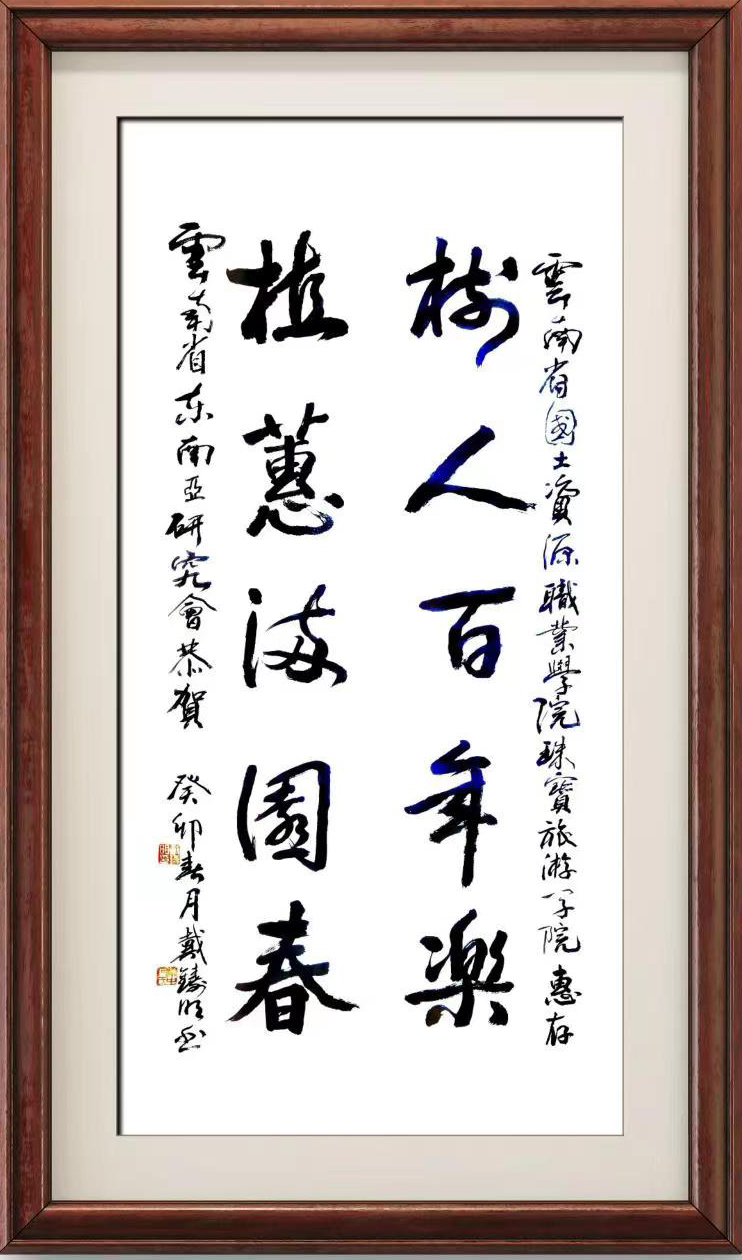 雲南省國土資源職業學院珠寶旅游学院惠存
樹人百年樂
植蕙满園春
雲南省东南亞研究會恭賀 癸卯春月戴鑄明书